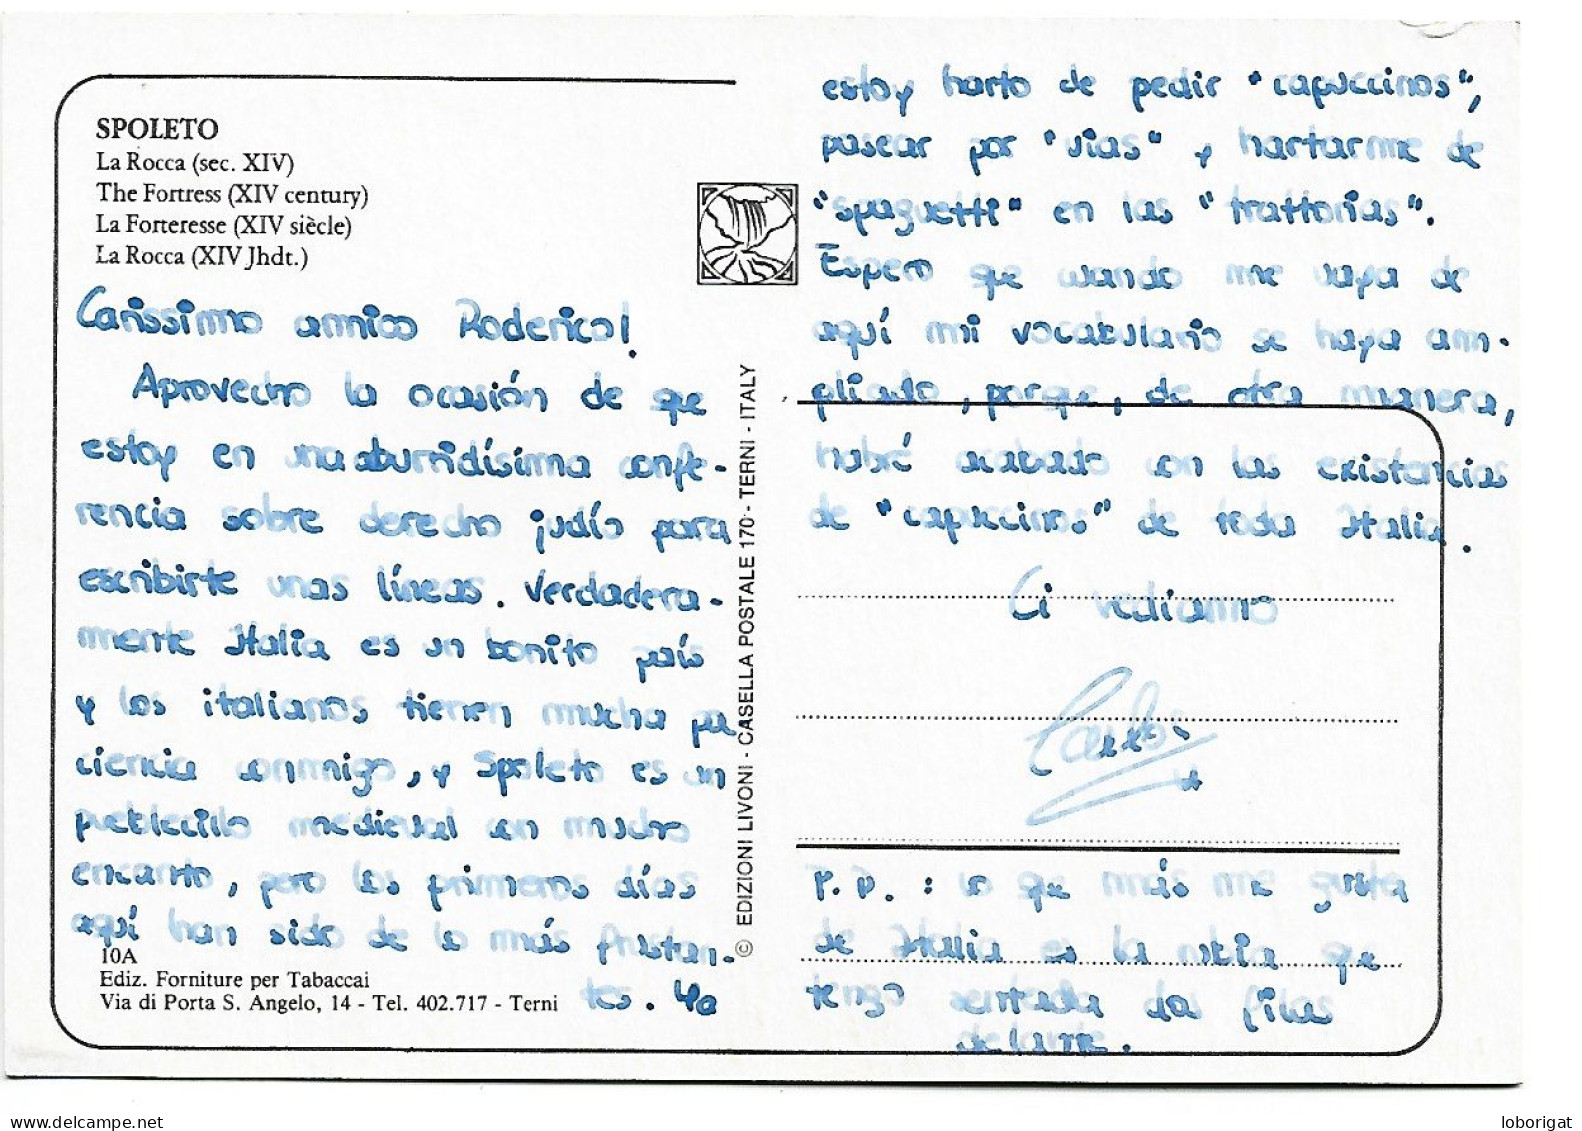 SPOLETO
La Rocca (sec. XIV)
The Fortress (XIV century)
La Forteresse (XIV siècle)
La Rocca (XIV Jhdt.)
Carissimo amico Roderico!
Aprovecho la ocasión de que
estoy en una aburridísima confe-
rencia sobre derecho judío para
escribirte unas líneas. Verdadera-
mente Italia es un bonito país
y los italianos tienen mucha pa
ciencia conmigo, y Spoleto es un
pueblecillo medieval con mucho
encanto, pero los primeros días
aquí han sido de lo más frustan-
tes. Ya
10A
Ediz. Forniture per Tabaccai
Via di Porta S. Angelo, 14 - Tel. 402.717 - Terni
© EDIZIONI LIVONI - CASELLA POSTALE 170 - TERNI - ITALY
estoy harto de pedir "capuccinos",
pasear por "vías" y hartarme de
"spaguetti" en las "trattorías".
Espero que cuando me vaya de
aquí mi vocabulario se haya am-
pliado, porque, de otra manera,
habré acabado con las existencias
de "capuccinos" de toda Italia.
Ci vediamo
Carlos
P.D.: lo que más me gusta
de Italia es la rubia que
tengo sentada dos filas
delante.
www.delcampe.net
loborigat